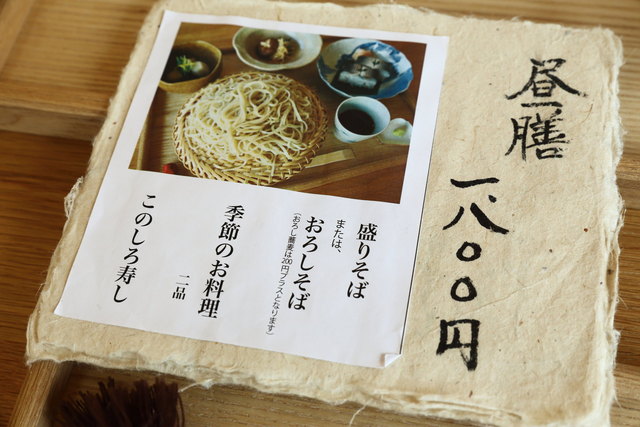 昼膳
一八〇〇円
盛りそば
または、
おろしそば
(おろし蕎麦は200円プラスとなります)
季節のお料理
二品
このしろ寿し